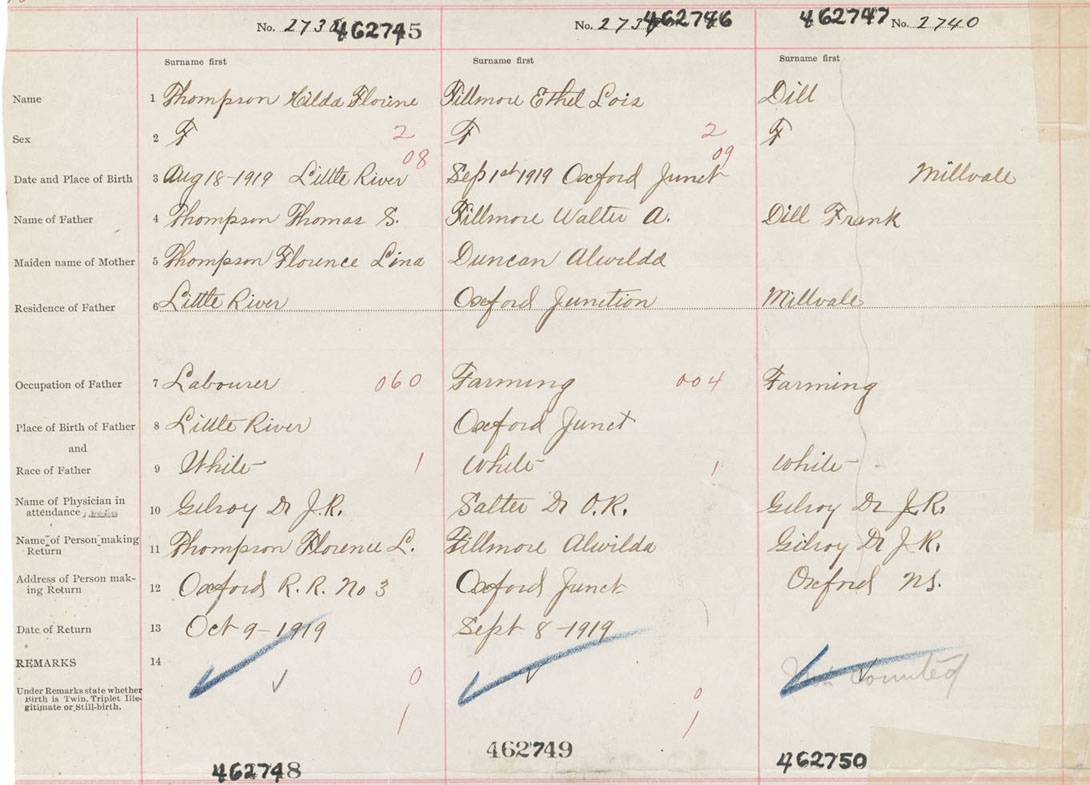 No. 273 462745 No. 273 462746 462747 No. 2740
Surname first Surname first Surname first
Name 1 Thompson Hilda Florine Fillmore Ethel Lois Dill
Sex 2 F 2 F 2 F
08 09
Date and Place of Birth 3 Aug 18-1919 Little River Sep 1st 1919 Oxford Junct Millvale
Name of Father 4 Thompson Thomas S. Fillmore Walter A. Dill Frank
Maiden name of Mother 5 Thompson Florence Lina Duncan Alwilda
Residence of Father 6 Little River Oxford Junction Millvale
Occupation of Father 7 Labourer 060 Farming 004 Farming
Place of Birth of Father 8 Little River Oxford Junct
and
Race of Father 9 White 1 White 1 White
Name of Physician in 10 Gilroy Dr J.R. Salter Dr O.R. Gilroy Dr J.R.
attendance
Name of Person making 11 Thompson Florence L. Fillmore Alwilda Gilroy Dr J.R.
Return
Address of Person mak- 12 Oxford R.R. No 3 Oxford Junct Oxford NS.
ing Return
Date of Return 13 Oct 9-1919 Sept 8-1919
REMARKS 14 Not Counted
Under Remarks state whether 0 0
Birth is Twin, Triplet Ille-
gitimate or Still-birth. 1 1
462748 462749 462750